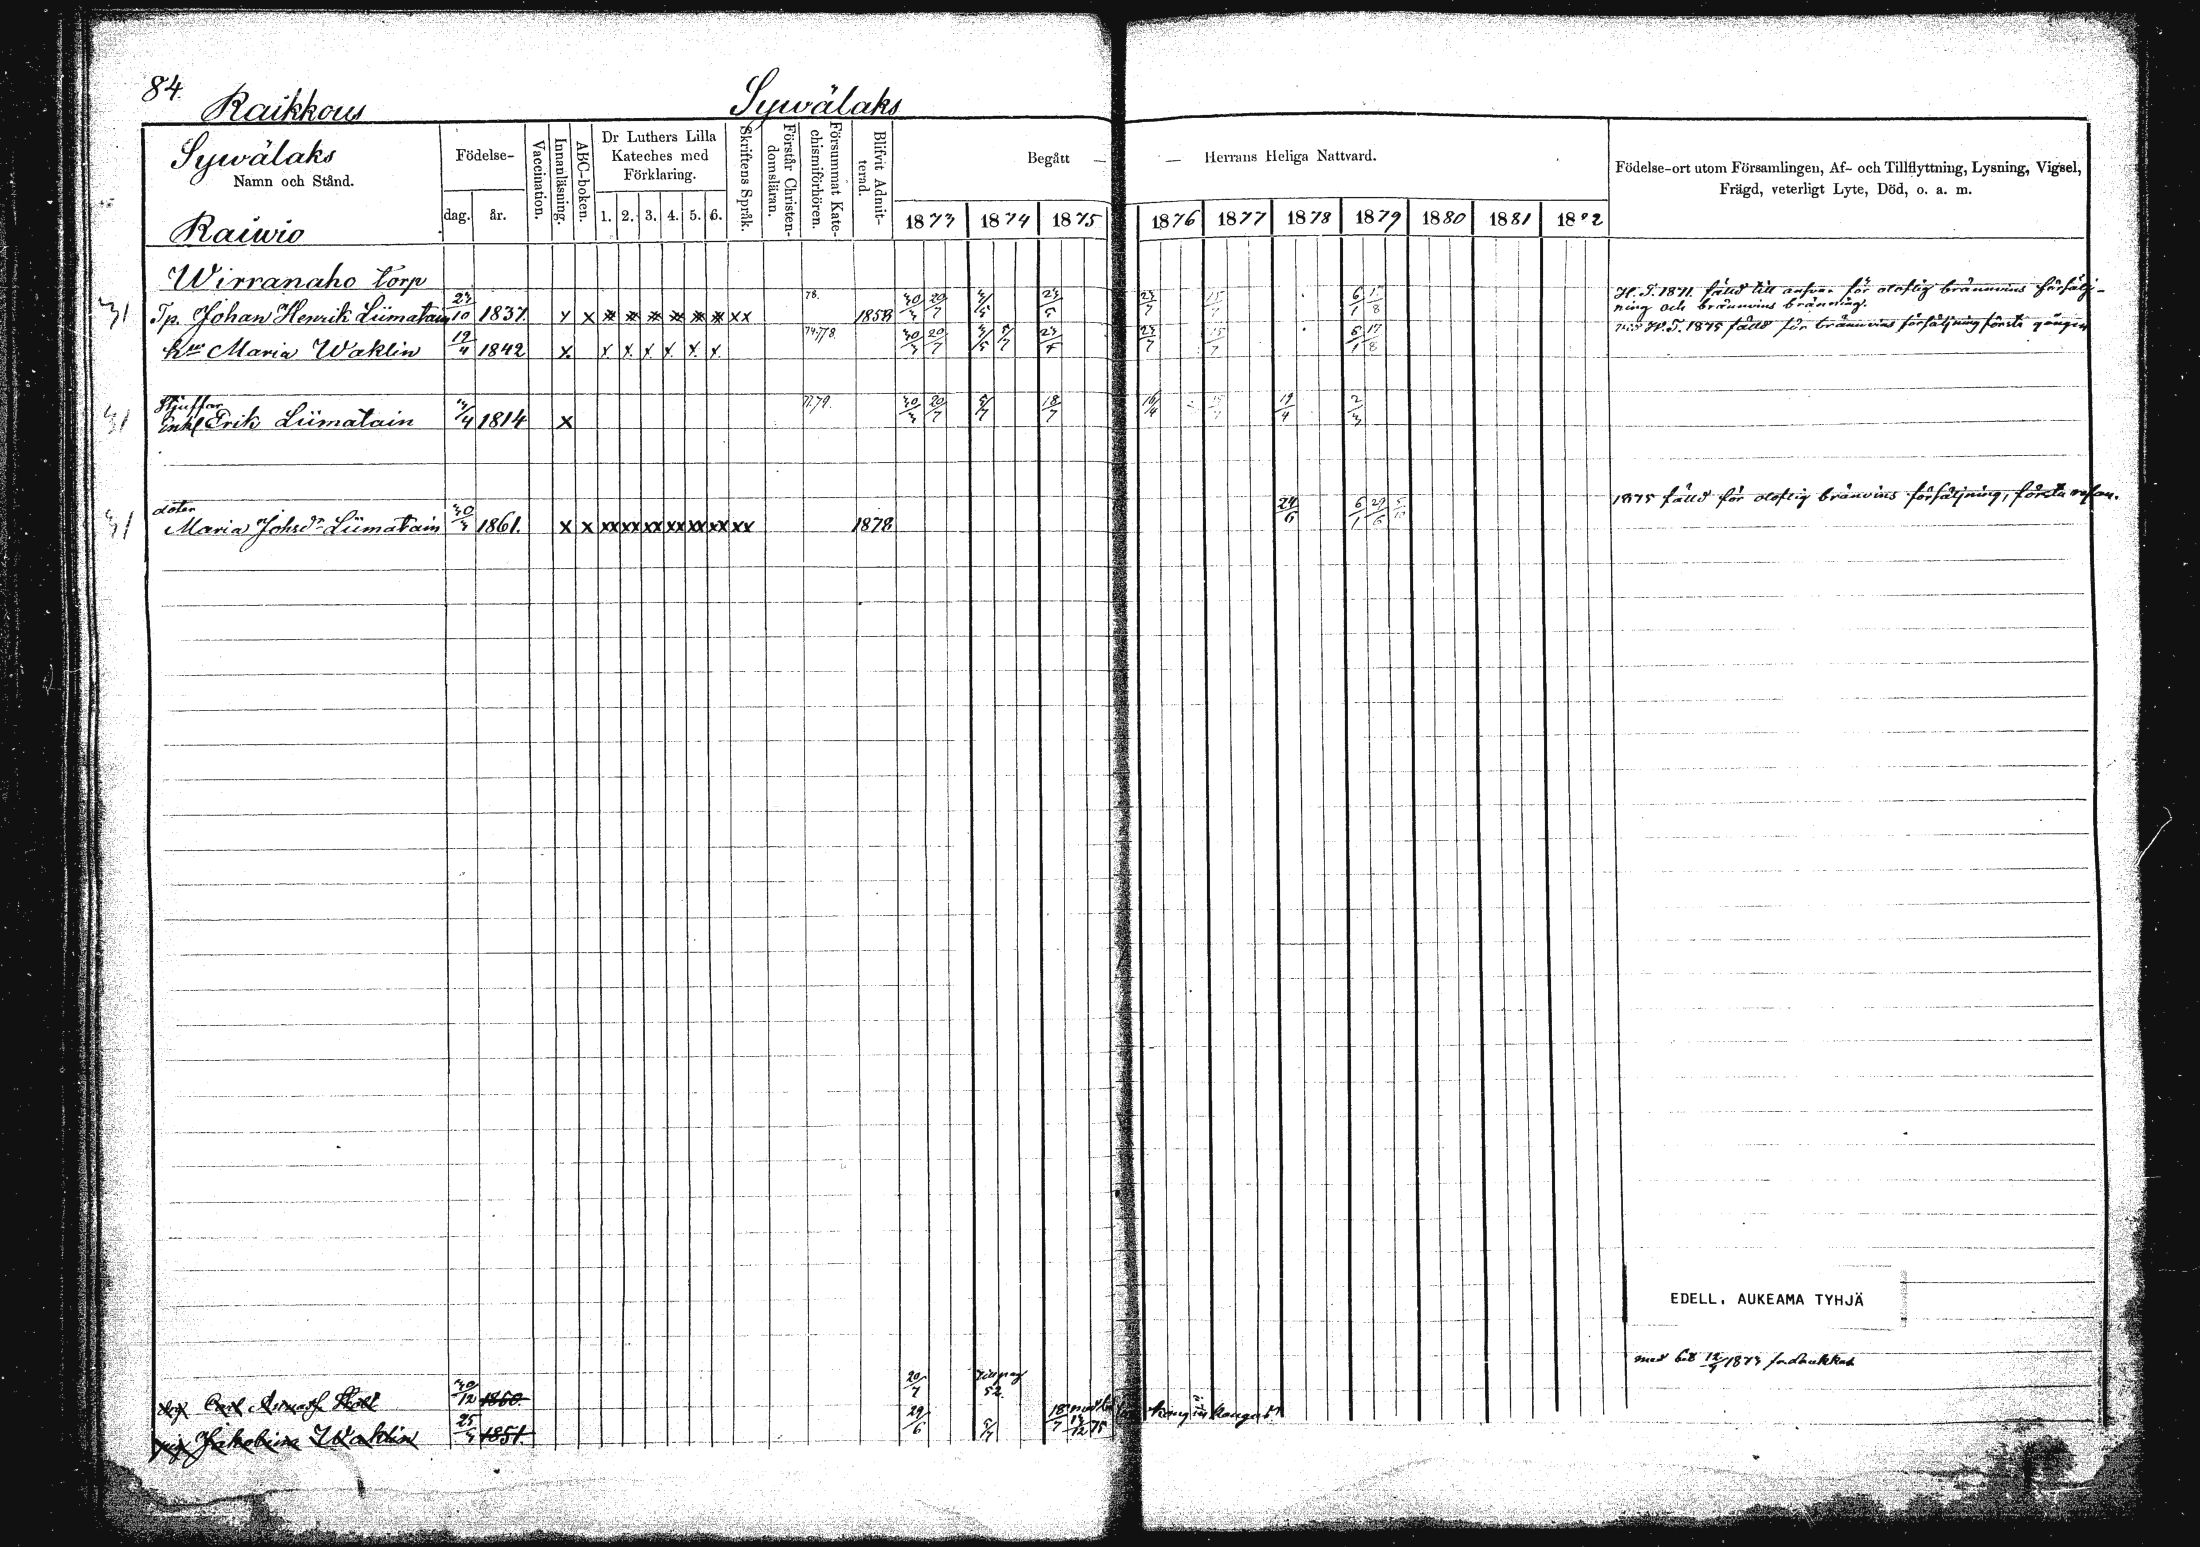 84
Raikkous Sywälaks
Sywälaks
Namn och Stånd.
Raiwio
Födelse-
dag. år.
Vaccination.
Innanläsning.
ABC-boken.
Dr Luthers Lilla
Kateches med
Förklaring.
1. 2. 3. 4. 5. 6.
Skriftens Språk.
Förstår Christen-
domsläran.
Försummat Kate-
chismiförhören.
Blifvit Admit-
terad.
Begått — — Herrans Heliga Nattvard.
1873 1874 1875 1876 1877 1878 1879 1880 1881 1882
Födelse-ort utom Församlingen, Af- och Tillflyttning, Lysning, Vigsel,
Frägd, veterligt Lyte, Död, o. a. m.
Wirranaho torp
31 Tp. Johan Henrik Liimatain 23/10 1837. x x x x x x x x xx 78. 1858 30/3 20/7 3/5 23/ 23/7 6/1 17/8 H. T. 1871 fälld till ansvar för olaflig brännvins försälj-
ning och brännvins bränning.
hu Maria Waklin 19/4 1842 x x x x x x x 30/3 20/7 3/5 5/7 23/ 23/7 15/7 6/1 17/8 vid H. T. 1875 fälld för brännvins försäljning första gången
31 inh Erik Liimatain 3/4 1814 x 30/3 20/7 5/7 18/7 16/4 19/4 2/3
doter
31 Maria Johsdr Liimatain 30/3 1861. x x xx xx xx xx xx xx xx 1878 24/6 6/1 29/6 5/10 1875 fälld för olaflig bränvins försäljning, första resan.
EDELL. AUKEAMA TYHJÄ
30/12 1860. 20/7 52. med bet 12/9 1873
Jakobina Waklin 25/3 1851. 29/6 5/7 18/7 13/12 75